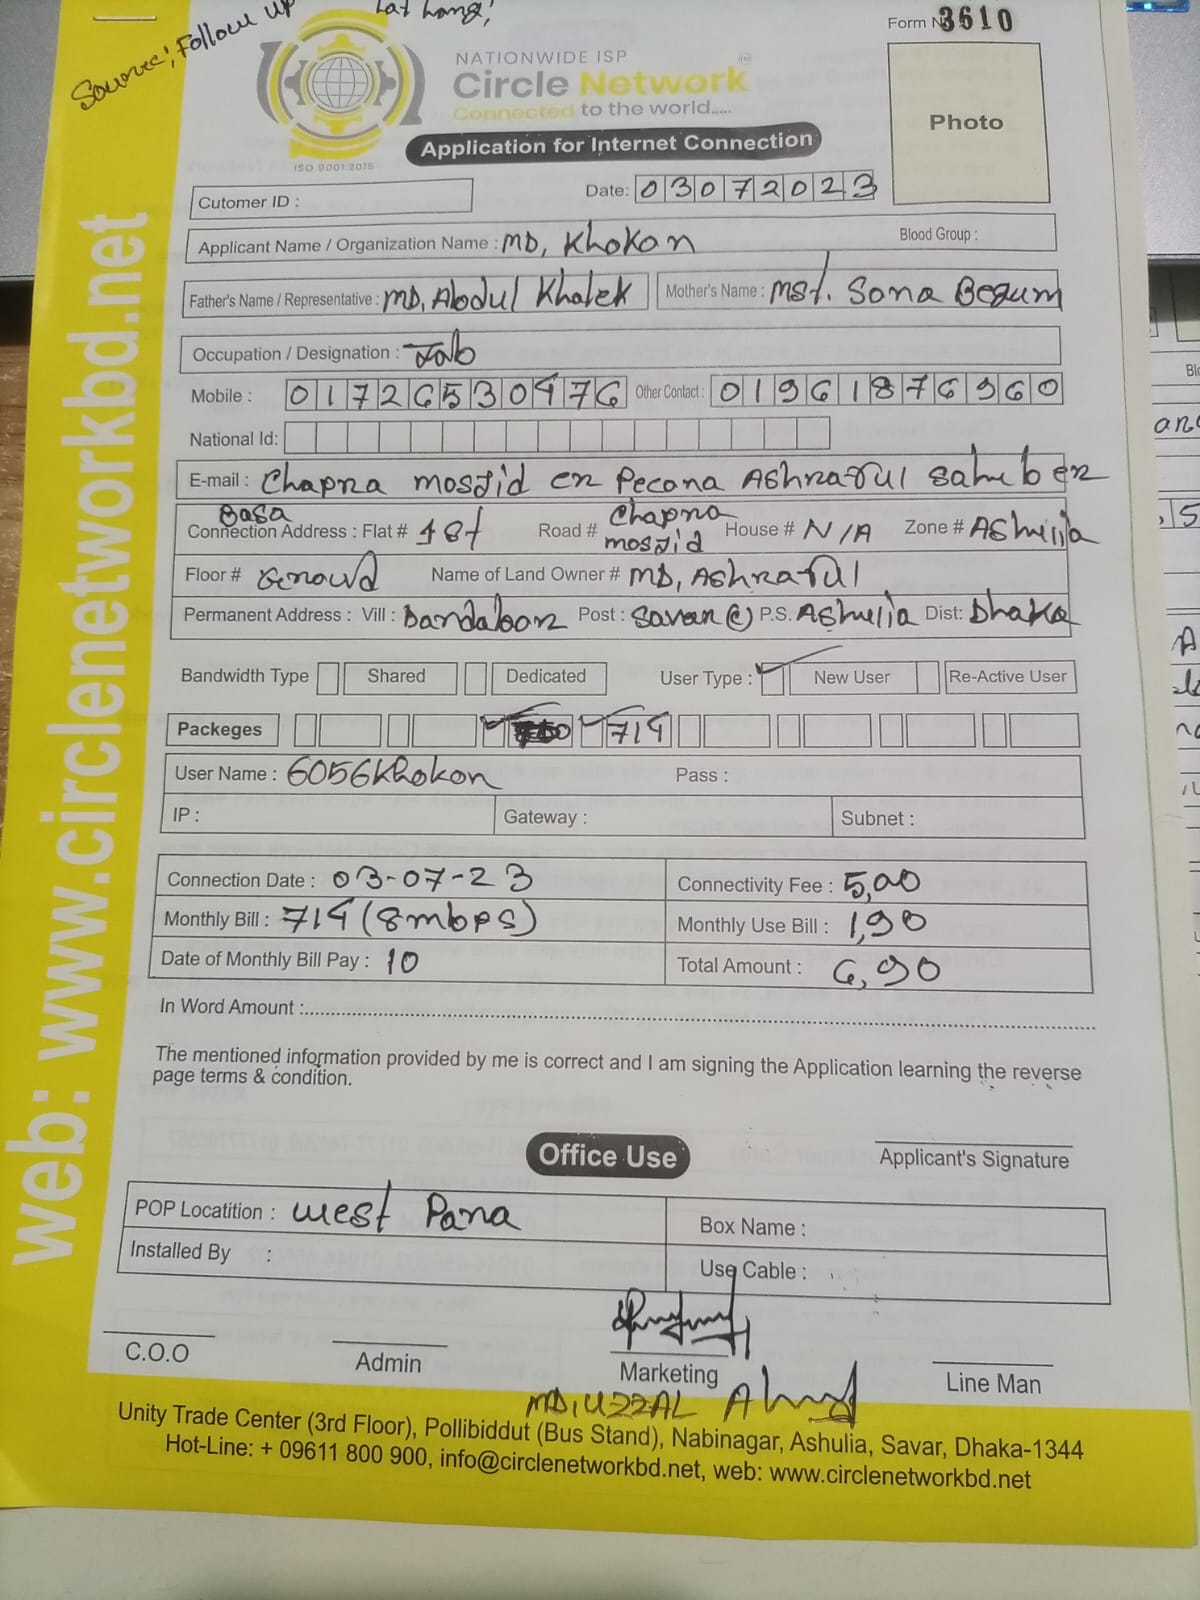 Source: Follow up
Form No 3610
NATIONWIDE ISP
Circle Network
Connected to the world.....
ISO 9001:2015
Application for Internet Connection
Photo
Date: 03072023
Cutomer ID :
Applicant Name / Organization Name : MD, Khokon
Blood Group :
Father's Name / Representative : MD, Abdul Khalek Mother's Name : Mst. Sona Begum
Occupation / Designation : Job
Mobile : 01726530476 Other Contact : 01961876960
National Id:
E-mail : Chapra mosjid er Pecana Ashraful saheb er
Basa
Connection Address : Flat # 1st Road # Chapra mosjid House # N/A Zone # Ashulia
Floor # Ground Name of Land Owner # MD, Ashraful
Permanent Address : Vill : Post : Savar P.S. Ashulia Dist: Dhaka
Bandwidth Type Shared Dedicated User Type : New User Re-Active User
Packeges 714
User Name : 6056Khokon Pass :
IP : Gateway : Subnet :
Connection Date : 03-07-23 Connectivity Fee : 5,00
Monthly Bill : 714 (8mbps) Monthly Use Bill : 1,90
Date of Monthly Bill Pay : 10 Total Amount : 6,90
In Word Amount :
The mentioned information provided by me is correct and I am signing the Application learning the reverse
page terms & condition.
Applicant's Signature
Office Use
POP Locatition : west Para Box Name :
Installed By : Use Cable :
C.O.O Admin Marketing Line Man
MD, UZZAL Ahmed
Unity Trade Center (3rd Floor), Pollibiddut (Bus Stand), Nabinagar, Ashulia, Savar, Dhaka-1344
Hot-Line: + 09611 800 900, info@circlenetworkbd.net, web: www.circlenetworkbd.net
web: www.circlenetworkbd.net